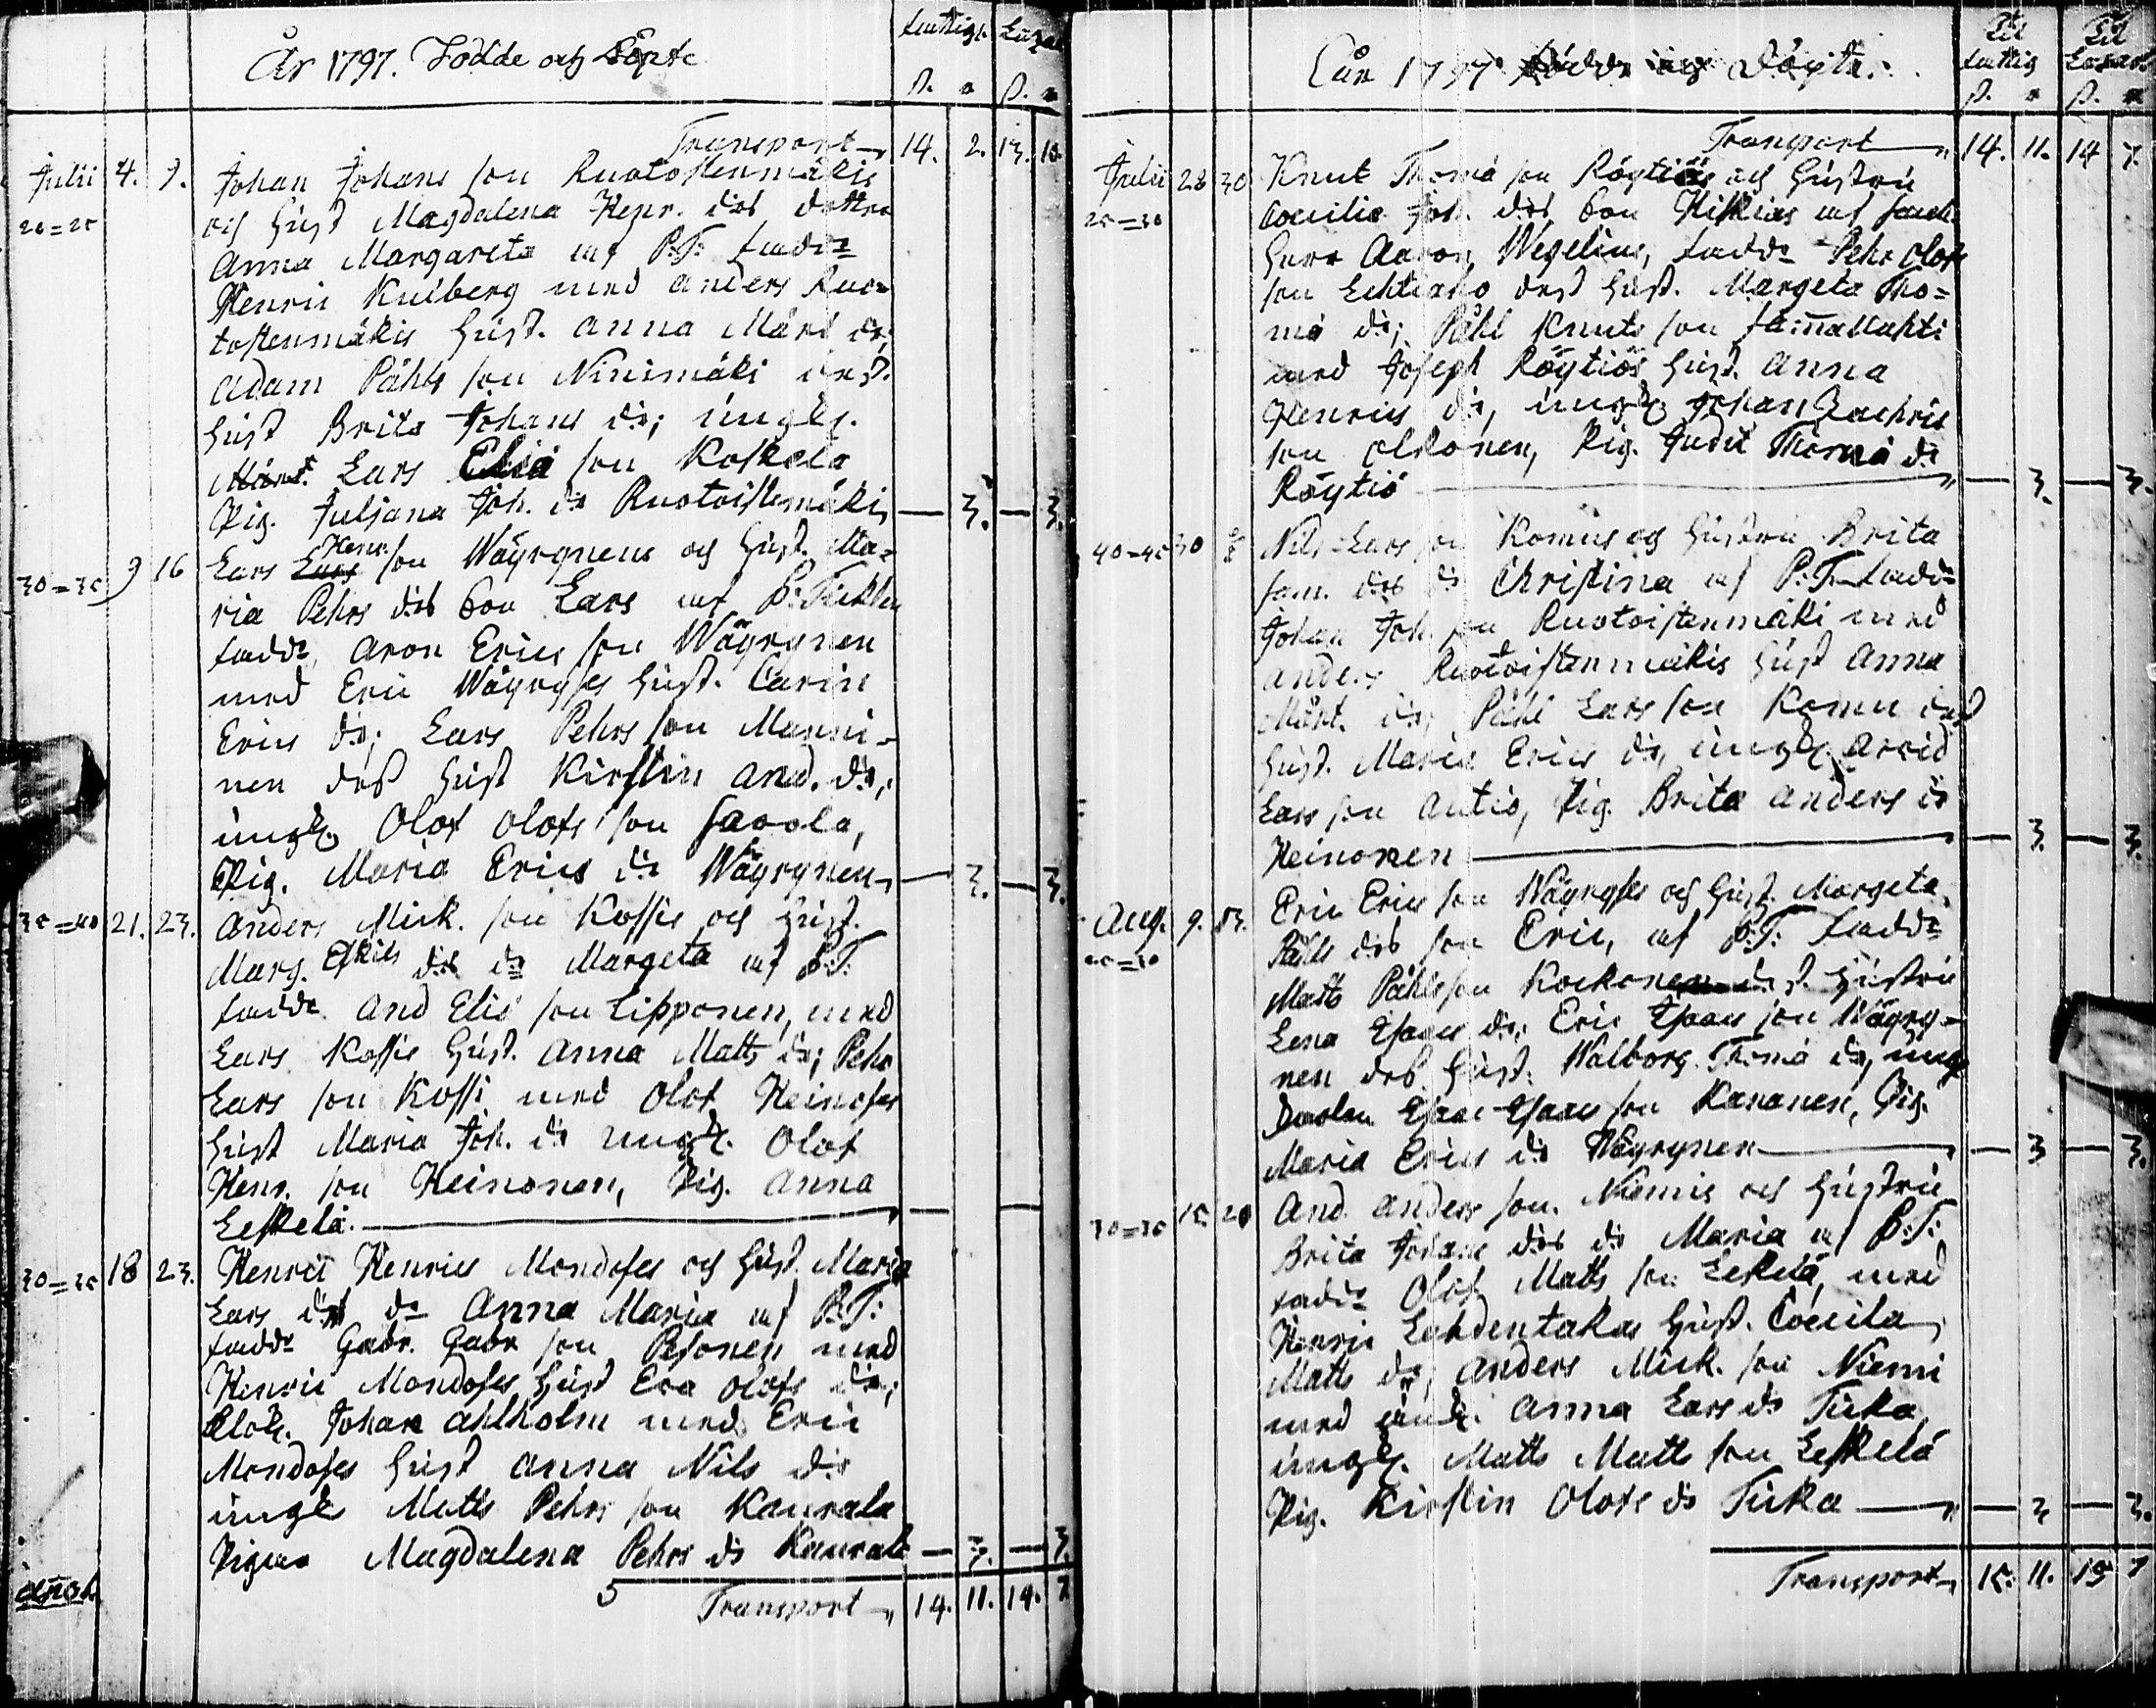 År 1797. Födde och Döpte
Transport 14. 2. 13. 10.
Julii 4. 9. Johan Johans son Ruotostenmäkis
och Hust Magdalena Henr. dr dotter
Anna Margareta af P:T: fadd:
Henric Kulberg med Anders Ruo=
tostenmäkis Hust. Anna Mårt dr;
Adam Påhls son Niinimäki dess
Hust Brita Johans dr; ungk.
Lars Eliæ son Koskela
Pig. Juliana Joh. dr Ruotoistemäki — 3. — 3.
30=35 9 16 Lars Henr. son Wäyrynens och Hust. Ma=
ria Pehrs dr son Lars af
fadd. Aron Erics son Wäyrynen
med Eric Wäyryses Hust. Carin
Erics dr; Lars Pehrs son Manni-
nen dess Hust Kirstin And. dr;
ungk. Olof Olofs son Savola,
Pig. Maria Erics dr Wäyrynen — 3. — 3.
35=40 21. 23. Anders Mick. son Kossis och Hust.
Marg. Eskils dr dr Margeta af P:T:
fadd. And Eliæ son Lipponen, med
Lars Kossis Hust. Anna Matts dr; Pehr
Lars son Kossi med Olof Heinoses
Hust Maria Joh. dr ungk. Olof
Henr. son Heinonen, Pig. Anna
Leskelä. — —
30=35 18 23. Henric Henrics Mondoses och Hust. Maria
Lars dr dr Anna Maria af P:T:
fadd Gabr. Gabr son Pesonen med
Henric Mondoses Hust Eva Olofs dr;
Klock. Johan Ahlholm med Eric
Mondoses Hust Anna Nils dr
ungk Matts Pehrs son Kaurala
Pigan Magdalena Pehrs dr Kaurala — 3. — 3.
5 Transport 14. 11. 14. 7
Åår 1797 födde och Döpte.
Transport 14. 11. 14 7.
Julii 28 30 Knut Thomæ son Röytiös och Hustru
25=30 Cœcilia Joh. dr son Hiskias af
Herr Aaron Wegelius, fadd: Pehr Olofs
son Lehtiaho dess Hust. Margeta Tho=
mæ dr; Påhl Knuts son Jämsälahti
med Joseph Röytiös Hust. Anna
Henrics dr, ungk. Johan Zachris
son Olkonen, Pig. Judit Thomæ dr
Röytiö — 3. — 3.
40=45 30 Nils Lars son Komus och Hustru Brita
Sam. dr dr Christina af P:T: fadd:
Johan Joh. son Ruotoistenmäki med
Anders Ruotoistenmäkis Hust Anna
Mårt. dr; Påhl Lars son Komu dess
Hust. Maria Erics dr, ungk. Arvid
Lars son Autio, Pig. Brita Anders dr
Heinonen — 3. — 3.
Aug. 9. 13. Eric Erics son Wäyryses och Hust. Margeta
Påhls dr son Eric, af P:T: fadd:
Matts Påhlsson Kockonen dess Hustru
Lena Esaias dr; Eric Esaias son Wäyry-
nen dess Hust. Walborg Thomæ dr, ungk
Esaias son Kananen, Pig.
Maria Erics dr Wäyrynen — 3 — 3.
30=35 15 20 And. Anders son Niemis och Hustru
Brita Johans dr dr Maria af P:T:
fadd: Olof Matts son Leskelä, med
Henric Lahdentakas Hust. Cœcila
Matts dr, Anders Mick. son Niemi
med Anna Lars dr Tuka,
ungk. Matts Matts son Leskelä
Pig. Kirstin Olofs dr Tuka — 3 — 3.
Transport 15. 11. 15 7